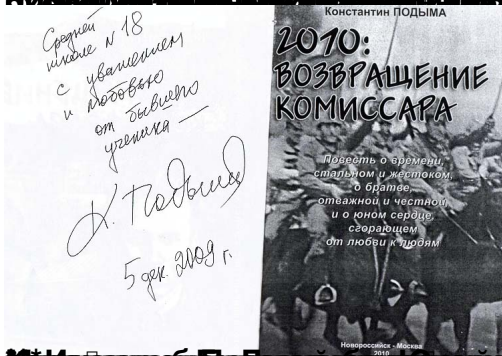 Средней
школе N 18
с уважением
и любовью
от бывшего
ученика —
К. Подыма
5 дек. 2009 г.
Константин ПОДЫМА
2010:
ВОЗВРАЩЕНИЕ
КОМИССАРА
Повесть о времени,
стальном и жестоком,
о братве,
отважной и честной
и о юном сердце,
сгорающем
от любви к людям
Новороссийск - Москва
2010